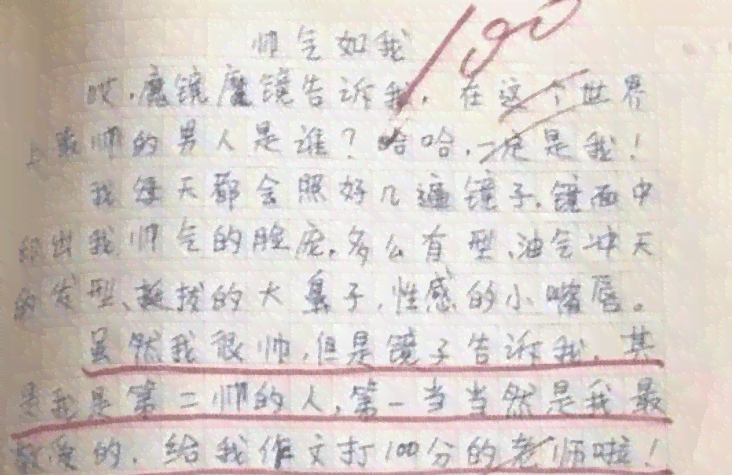 帅气如我
100
哎，魔镜魔镜告诉我，在这个世界
上最帅的男人是谁？哈哈，一定是我！
我每天都会照好几遍镜子，镜面中
印出我帅气的脸庞，多么有型，油气冲天
的发型、挺拔的大鼻子，性感的小嘴唇。
虽然我很帅，但是镜子告诉我，其
是我是第二帅的人，第一当当然是我最
敬爱的，给我作文打100分的老师啦！